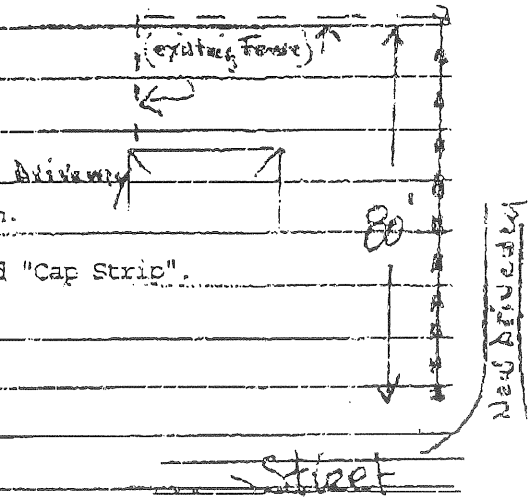 (existing Fence)
Driveway
n.
80'
d "Cap Strip".
New Driveway
Street